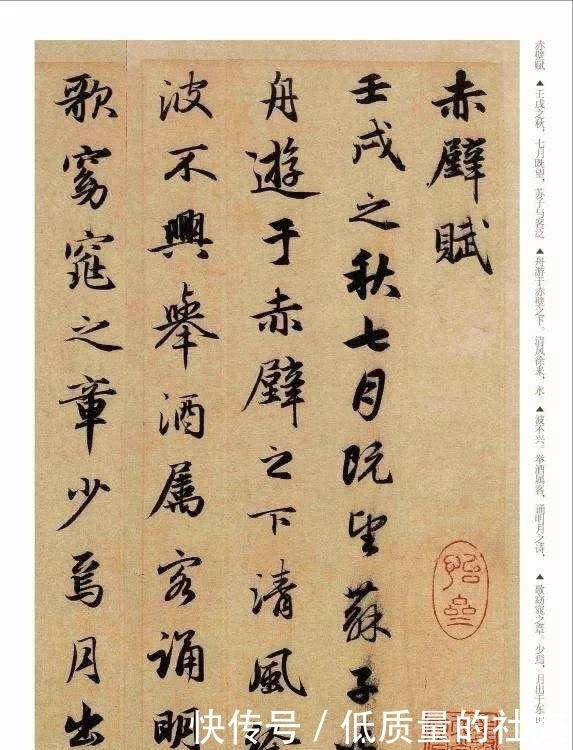 赤壁赋 ▲壬戌之秋，七月既望，苏子与客泛 ▲舟游于赤壁之下。清风徐来，水 ▲波不兴。举酒属客，诵明月之诗， ▲歌窈窕之章。少焉，月出于东
赤壁賦
壬戌之秋七月既望蘇子
舟遊于赤壁之下清風
波不興舉酒属客誦明
歌窈窕之章少焉月出
快传号 / 低质量的社